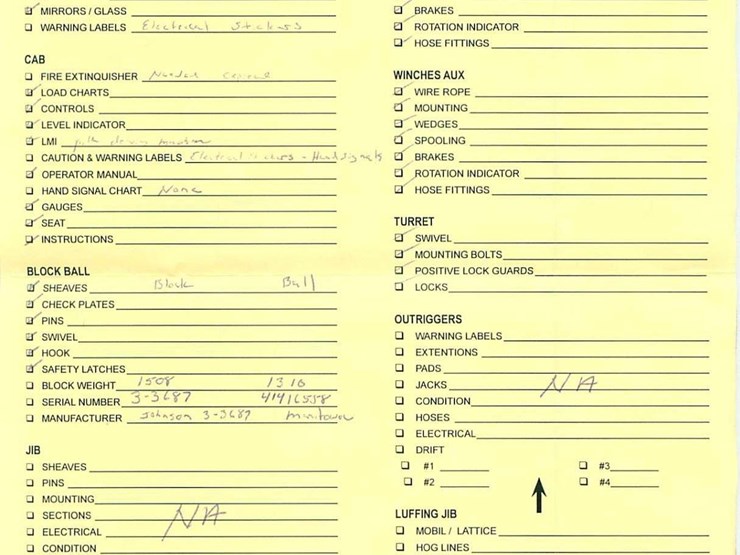 MIRRORS / GLASS
WARNING LABELS Electrical Stickers
CAB
FIRE EXTINQUISHER Needed
LOAD CHARTS
CONTROLS
LEVEL INDICATOR
LMI
CAUTION & WARNING LABELS Electrical Stickers - Hand Signals
OPERATOR MANUAL
HAND SIGNAL CHART None
GAUGES
SEAT
INSTRUCTIONS
BLOCK BALL
SHEAVES Block Ball
CHECK PLATES
PINS
SWIVEL
HOOK
SAFETY LATCHES
BLOCK WEIGHT 1508 1310
SERIAL NUMBER 3-3687
MANUFACTURER Johnson 3-3687
JIB
SHEAVES
PINS
MOUNTING
SECTIONS NA
ELECTRICAL
CONDITION
BRAKES
ROTATION INDICATOR
HOSE FITTINGS
WINCHES AUX
WIRE ROPE
MOUNTING
WEDGES
SPOOLING
BRAKES
ROTATION INDICATOR
HOSE FITTINGS
TURRET
SWIVEL
MOUNTING BOLTS
POSITIVE LOCK GUARDS
LOCKS
OUTRIGGERS
WARNING LABELS
EXTENTIONS
PADS
JACKS NA
CONDITION
HOSES
ELECTRICAL
DRIFT
#1 #3
#2 #4
LUFFING JIB
MOBIL / LATTICE
HOG LINES